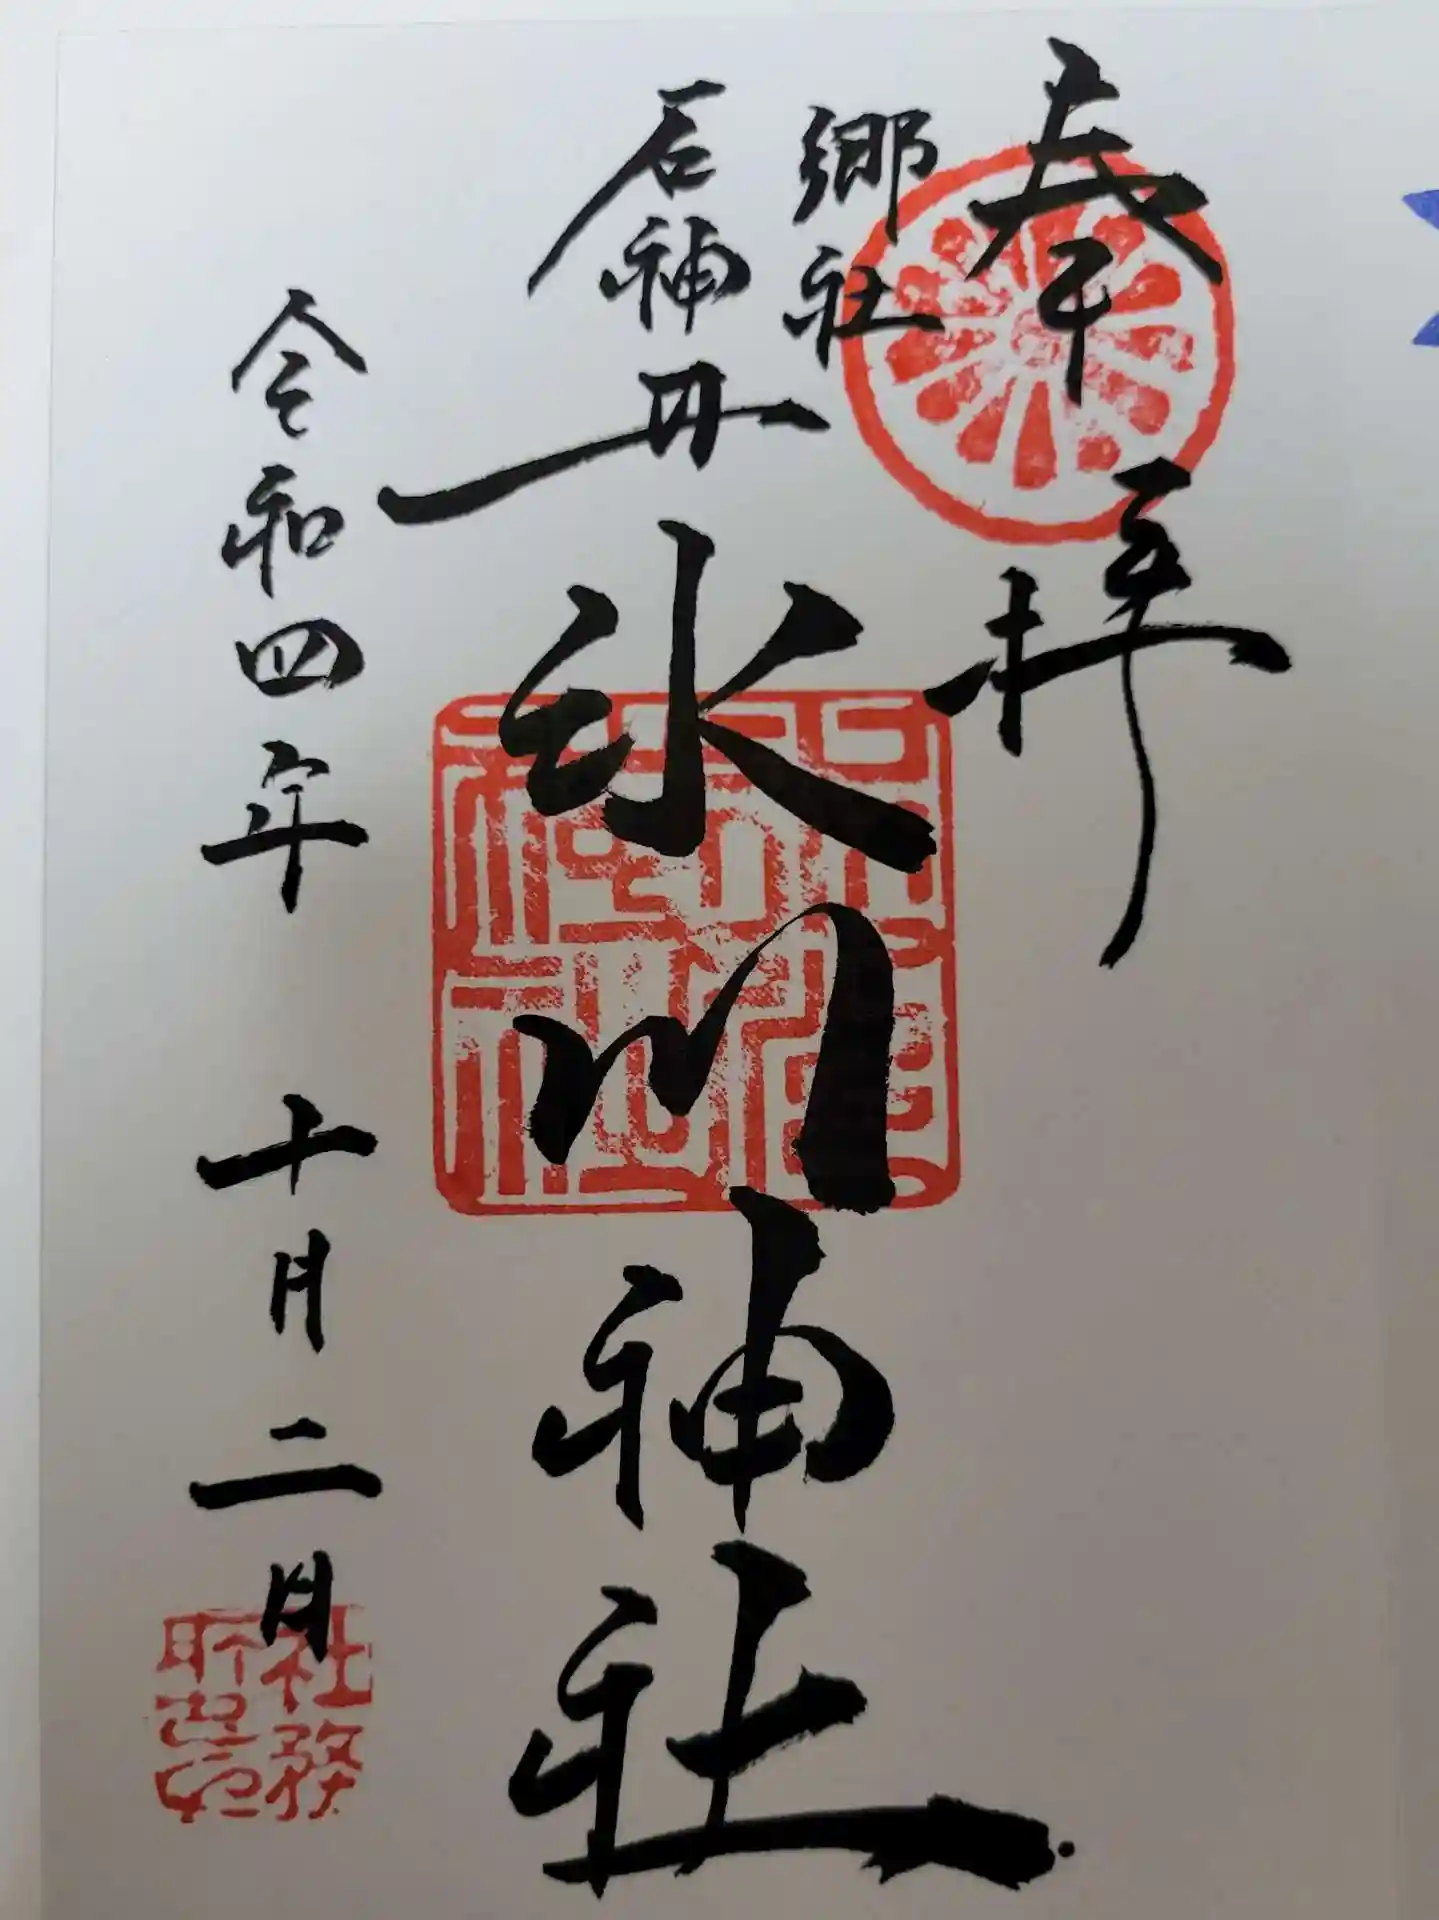 奉拝
郷社
石神井
氷川神社
令和四年 十月二日
社務